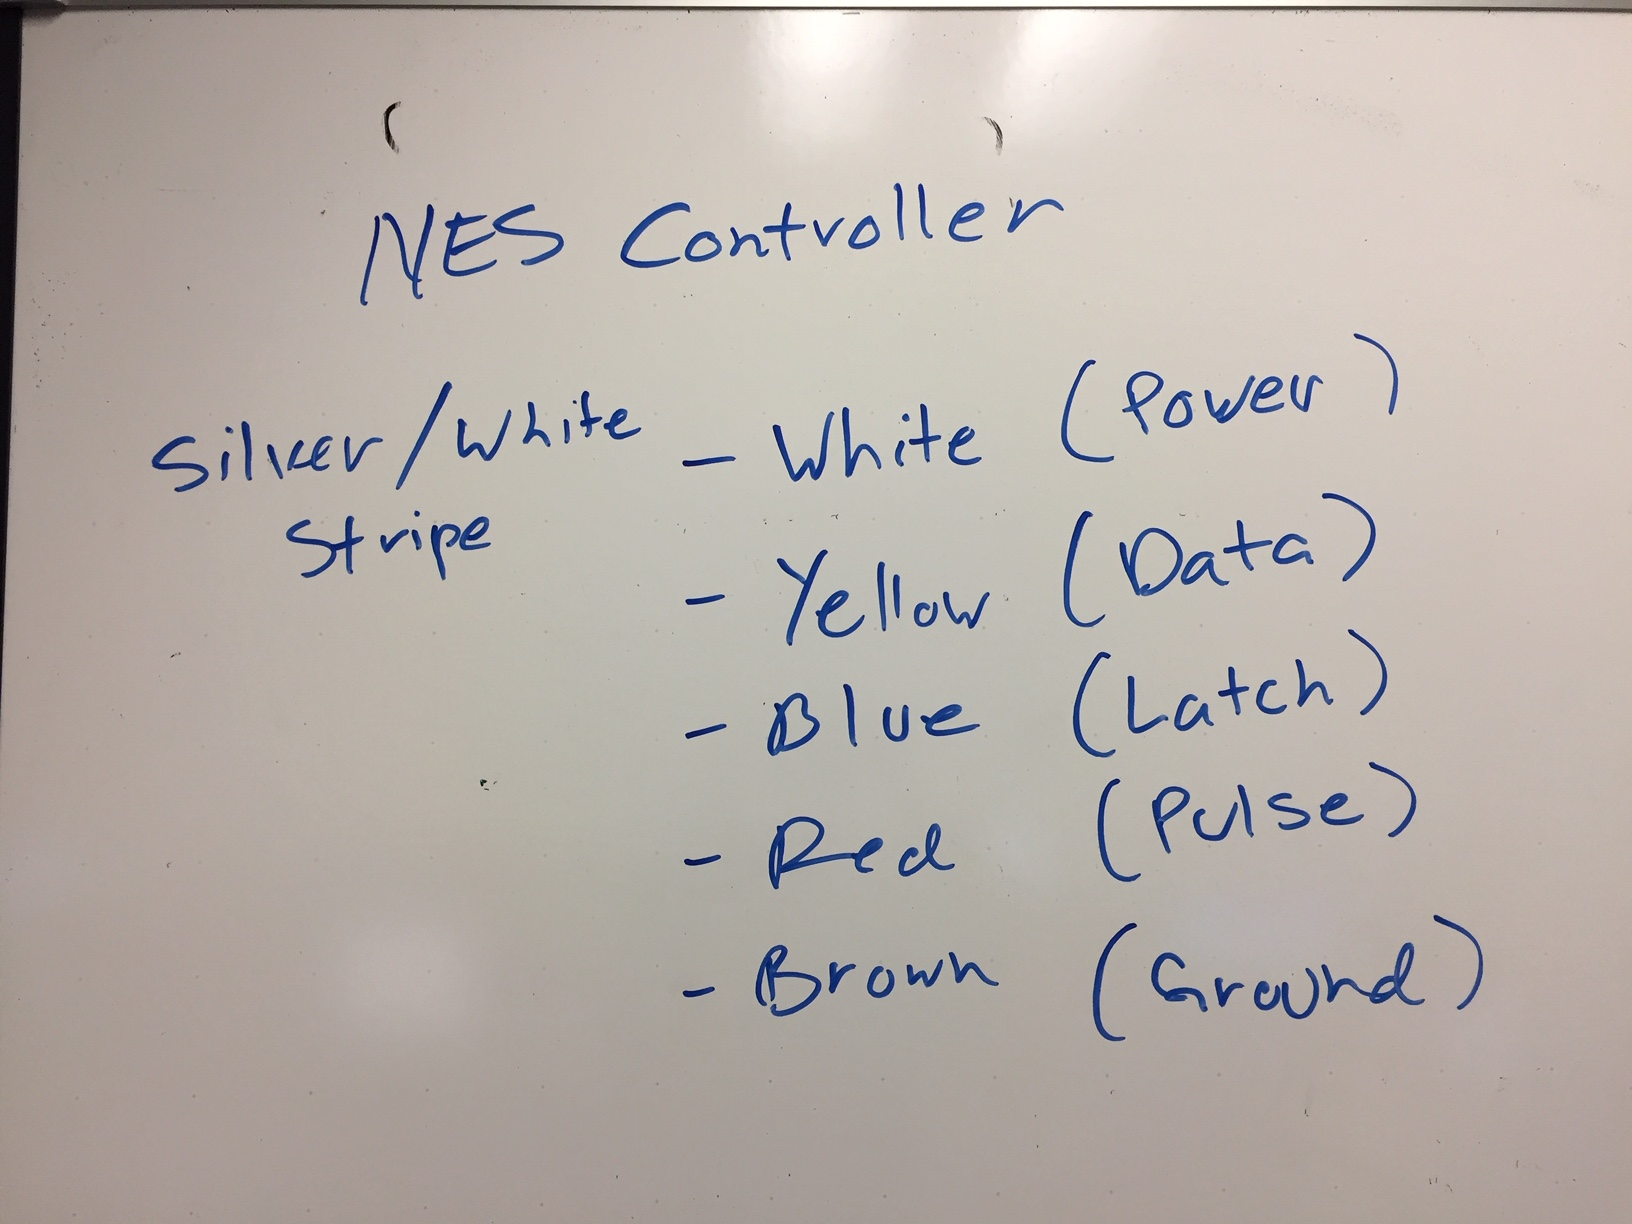 NES Controller
Silver/White - White (Power)
Stripe
- Yellow (Data)
- Blue (Latch)
- Red (Pulse)
- Brown (Ground)